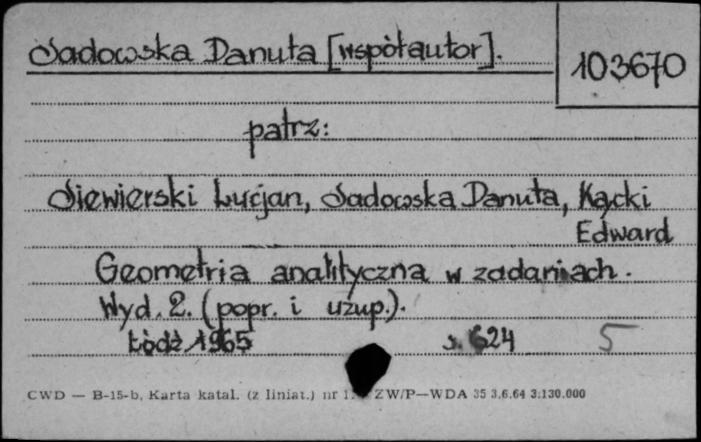 Sadowska Danuta [współautor].
103670
patrz:
Siewierski Lucjan, Sadowska Danuta, Kącki
Edward
Geometria analityczna w zadaniach.
Wyd. 2. (popr. i uzup.).
Łódź 1965 s. 624 5
CWD — B-15-b, Karta katal. (z liniat.) nr ZW/P—WDA 35 3.6.64 3:130.000